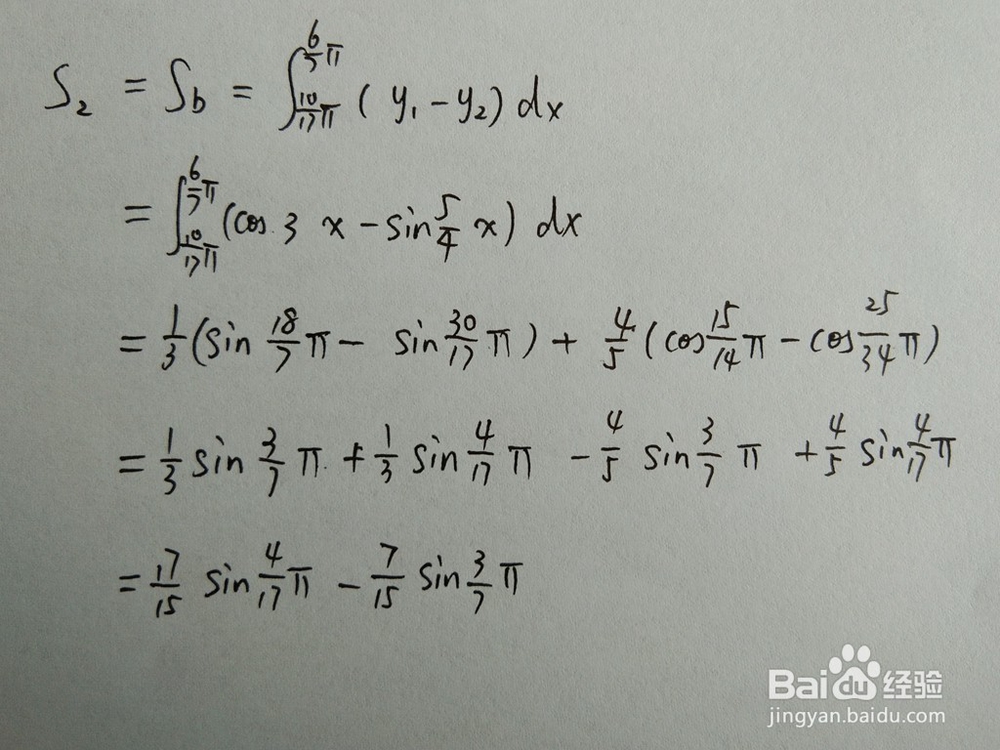 S₂ = S_b = ∫_{10/17 π}^{6/7 π} (y₁ - y₂) dx
= ∫_{10/17 π}^{6/7 π} (cos 3 x - sin 5/4 x) dx
= 1/3 (sin 18/7 π - sin 30/17 π) + 4/5 (cos 15/14 π - cos 25/34 π)
= 1/3 sin 3/7 π + 1/3 sin 4/17 π - 4/5 sin 3/7 π + 4/5 sin 4/17 π
= 17/15 sin 4/17 π - 7/15 sin 3/7 π
Baidu 经验
jingyan.baidu.com